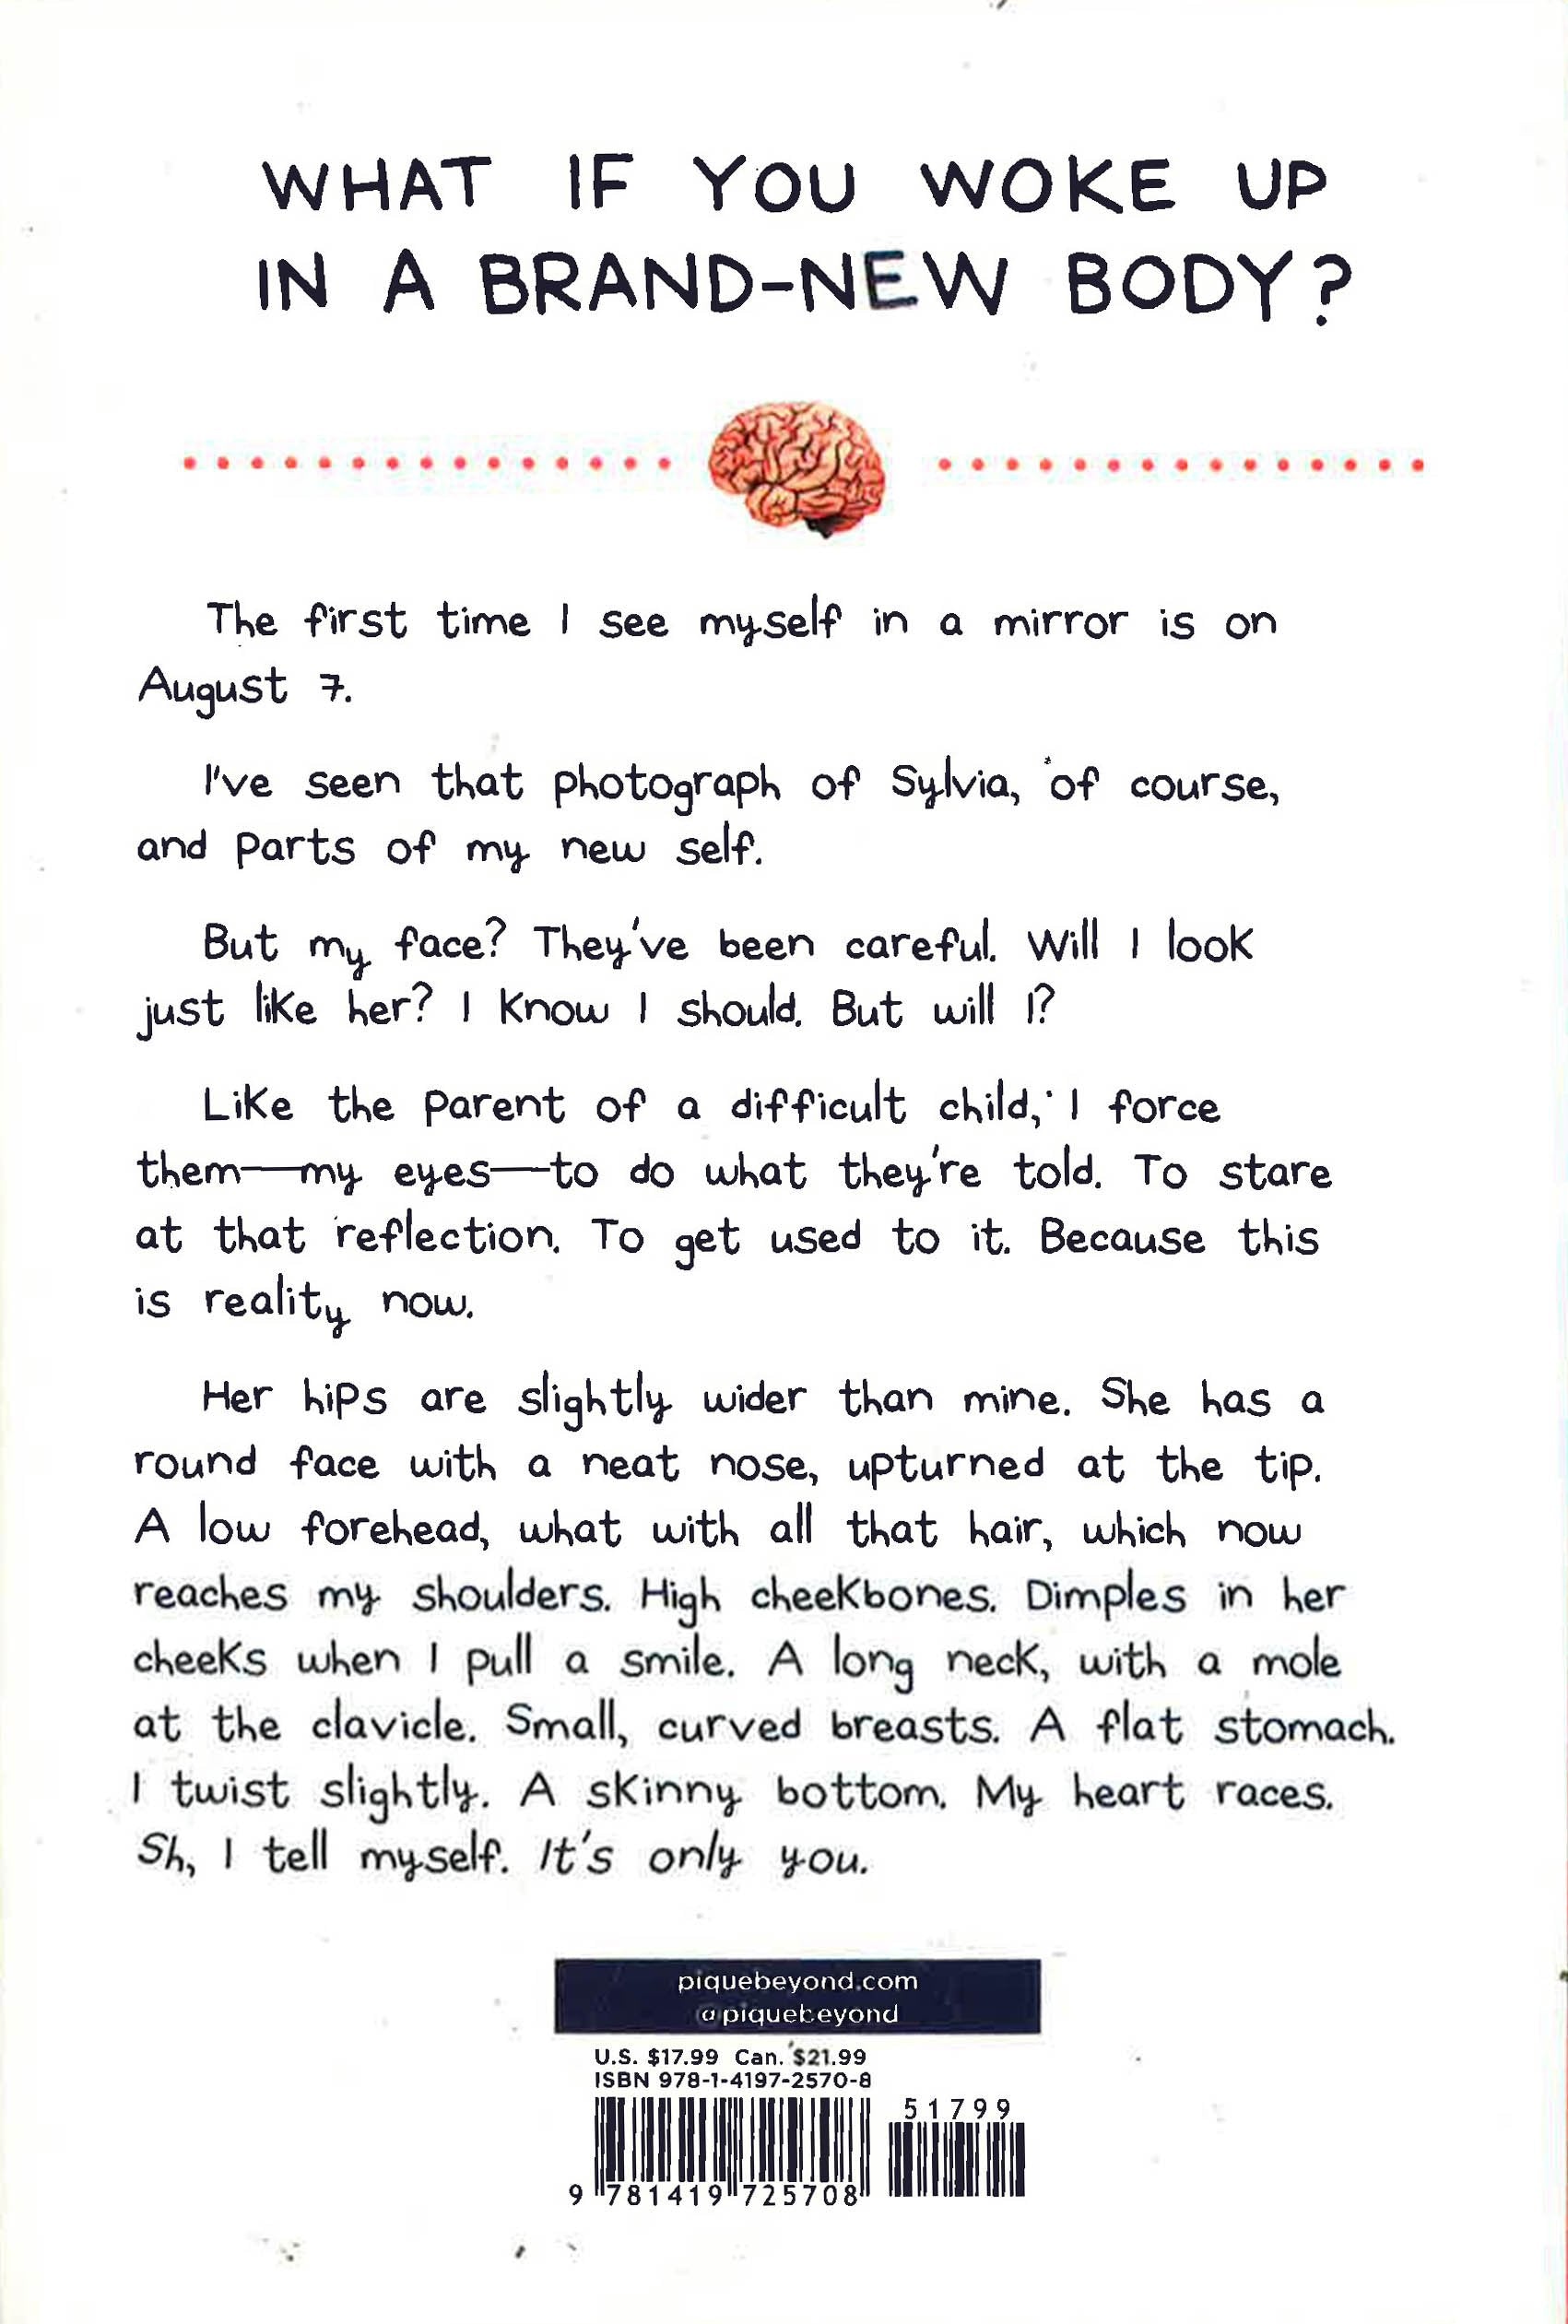 WHAT IF YOU WOKE UP
IN A BRAND-NEW BODY?
The first time I see myself in a mirror is on
August 7.
I've seen that photograph of Sylvia, of course,
and parts of my new self.
But my face? They've been careful. Will I look
just like her? I know I should. But will I?
Like the parent of a difficult child, I force
them—my eyes—to do what they're told. To stare
at that reflection. To get used to it. Because this
is reality now.
Her hips are slightly wider than mine. She has a
round face with a neat nose, upturned at the tip.
A low forehead, what with all that hair, which now
reaches my shoulders. High cheekbones. Dimples in her
cheeks when I pull a smile. A long neck, with a mole
at the clavicle. Small, curved breasts. A flat stomach.
I twist slightly. A skinny bottom. My heart races.
Sh, I tell myself. It's only you.
piquebeyond.com
@piquebeyond
U.S. $17.99 Can. $21.99
ISBN 978-1-4197-2570-8
51799
9 781419 725708